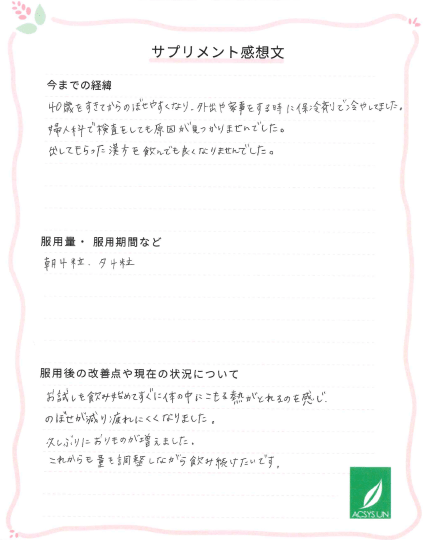 サプリメント感想文
今までの経緯
40歳をすぎてからのぼせやすくなり、外出や家事をする時に保冷剤で冷やしてました。
婦人科で検査をしても原因が見つかりませんでした。
出してもらった漢方を飲んでも良くなりませんでした。
服用量・服用期間など
朝4粒、夕4粒
服用後の改善点や現在の状況について
お試しを飲み始めてすぐに体の中にこもる熱がとれるのを感じ
のぼせが減り疲れにくくなりました。
久しぶりにおりものが増えました。
これからも量を調整しながら飲み続けたいです。
ACSYS UN